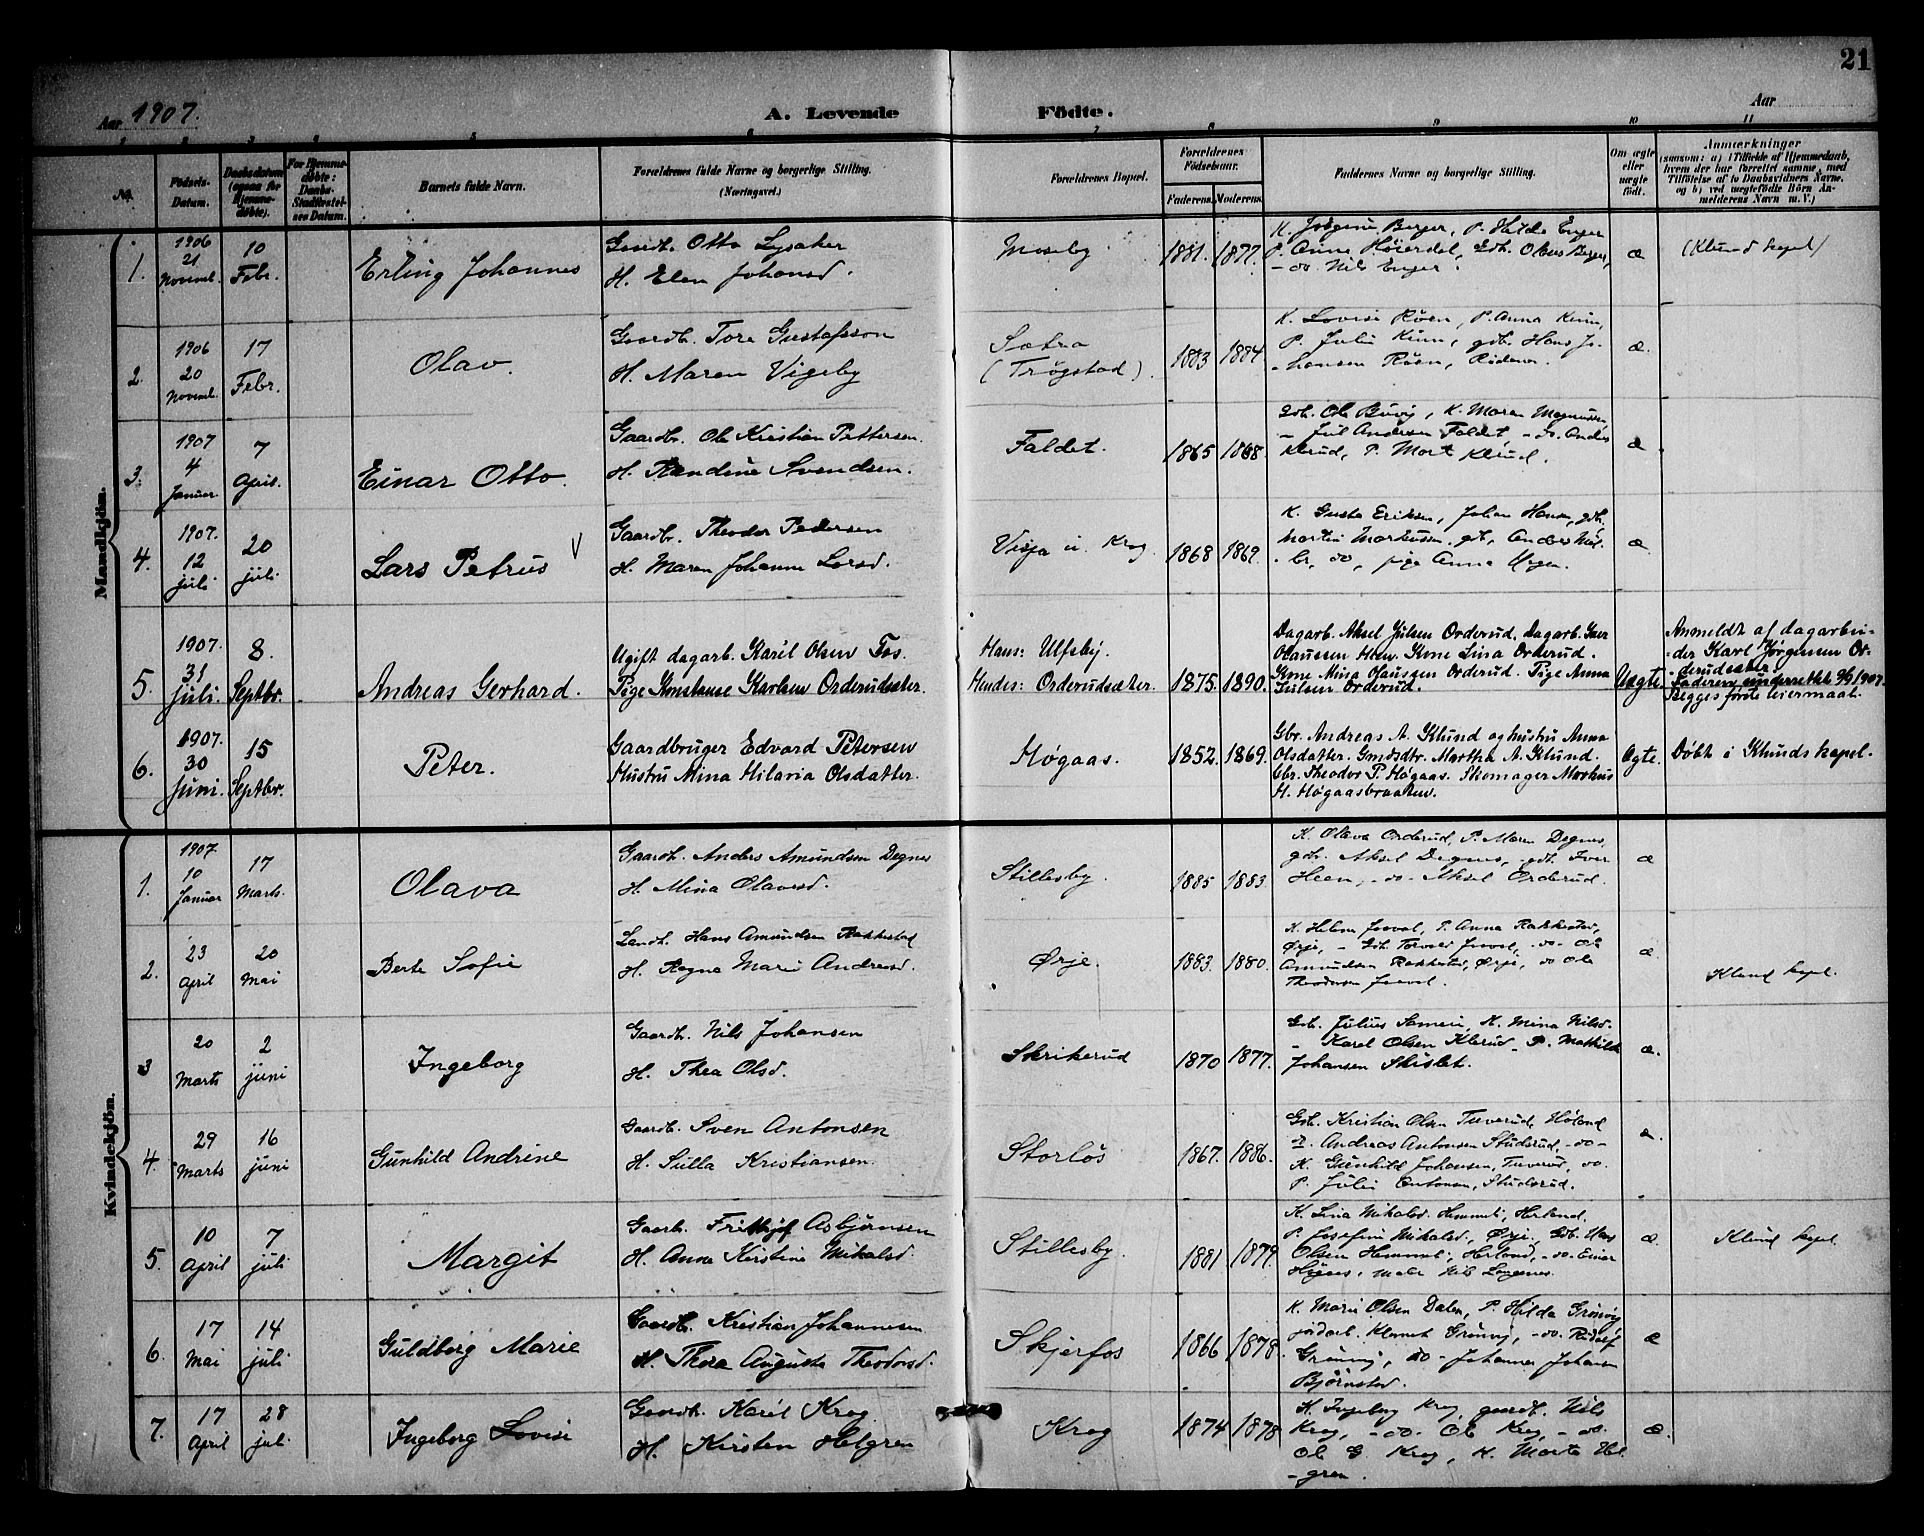 21
Aar 1907. A. Levende Födte. Aar
1 2 3 4 5 6 7 8 9 10 11
No. Födsels-Datum. Daabsdatum (ogsaa for Hjemmedöbte). For Hjemmedöbte: Daabs-Stadfæstelses Datum. Barnets fulde Navn. Forældrenes fulde Navne og borgerlige Stilling. (Næringsvei.) Forældrenes Bopæl. Forældrenes Födselsaar. Faderens. Moderens. Faddernes Navne og borgerlige Stilling. Om ægte eller uægte födt. Anmærkninger (saasom: a) i Tilfælde af Hjemmedaab, hvem der har forrettet samme, med Tilföielse af to Daabsvidners Navne, og b) ved uægtefödte Börn Anmelderens Navn m. V.)
Mandkjön.
1. 1906 21 Novembr. 10 Febr. Erling Johannes
Gaardb. Otto Lysaker
H. Elen Johansd.
Moseby 1881. 1877.
K. Jørgine Berger, P. Hilda Enger
P. Anna Höierdal, Gdb. Olaus Berger,
- do. Nils Enger.
æ (Klund kapel)
2. 1906 20 Novembr. 17 Febr. Olav.
Gaardb. Tore Gustafsson
H. Maren Vigeby
Sætra
(Trøgstad). 1883 1884.
K. Lovise Röen, P. Anna
P. Julie gdb. Hans Jo-
hansen Röen,
æ.
3. 1907 4 Januar. 7 April. Einar Otto.
Gaardbr. Ole Kristian Pettersen.
H. Randine Svendsen.
Faldet. 1865 1868.
Gdb. Ole Buvig, K. Maren Magnussen
- Jul Andersen Faldet, - do. Anders
Klerud, P. Klerud.
æ
4. 1907. 12 juli 20 juli Lars Petrus V
Gaardb. Theodor Pedersen
H. Maren Johanne Larsd.
Visja u. Krog. 1868 1869.
K. Gusta Eriksen, Johan Hansen, gdb.
Martin Markussen, gb. Anders
br, do, pige Anna
æ.
5. 1907. 31 juli. 8. Septbr. Andreas Gerhard.
Ugift dagarb. Karil Olsen Fos.
Pige Konstanse Karlsen Orderudsæter.
Hans: Ulfsby.
Hendes: Orderudsæter. 1875. 1890.
Dagarb. Aksel Julsen Orderud. Dagarb. Iver
Olaussen Hoen. Kone Lina Orderud.
Kone Mina Olaussen Orderud. Pige Anna
Julsen Orderud.
Uægte
Anmeldt af dagarbei-
-der Karl Jørgensen Or-
-derudsæter.
Faderen underrettet 9/9 1907.
Begges første leiermaal.
6. 1907. 30 Juni. 15 Septbr. Peter.
Gaardbruger Edvard Petersen
Hustru Mina Hilaria Olsdatter.
Høgaas. 1852. 1869.
Gbr. Andreas A. Klund og hustru Anna
Olsdatter. Gmdsdtr. Martha A. Klund.
Gbr. Theodor P. Høgaas. Skomager Markus
H. Høgaasbraaten.
Ægte. Døbt i Klunds kapel.
Kvindekjön.
1. 1907. 10 Januar 17 Marts. Olava
Gaardb. Anders Amundsen Degnes
H. Mina Olavesd.
Stillesby. 1885 1883.
K. Olava Orderud, P. Maren Degnes,
gdb. Aksel Degnes, gdb. Iver
Heen, - do - Aksel Orderud.
æ
2. 23 april 20 Mai Berte Sofie
Landh. Hans Amundsen Rakkestad
H. Ragna Marie Andreasd.
Ørje. 1883. 1880.
K. Helene Joeval, P. Anna Rakkestad,
Ørje, - Gdb. Torvald Joeval, - do - Ole
Amundsen Rakkestad, Ørje, do Ole
Theodorsen Joeval.
æ. Klund kapel.
3 20 Marts 2 juni Ingeborg
Gaardb. Nils Johansen
H. Thea Olsd.
Skrikerud 1870 1877.
Gdb. Julius Sameie, K. Mina Nilsd.
- Karel Olsen Klerud - P. Mathilde
Johansen Skislet.
æ.
4. 29 Marts 16 juni Gunhild Andrine
Gaardb. Sven Antonsen
H. Julla Kristiansen.
Storløs 1867. 1886.
Gdb. Kristian Olsen Tuverud, Høland
Andreas Antonsen Studsrud, - do -
K. Gunhild Johansen, Tuverud, do.
P. Julie Antonsen, Studsrud.
æ.
5. 10 April 7 juli Margit
Gaarb. Frithjof Asbjørnsen
H. Anna Kirstine Mikalsd.
Stillesby. 1881 1879.
K. Lina Mikalsd. Hemnel, Herland.
P. Josefine Mikalsd, Ørje, Gdb. Hans
Olsen Hemnel, Herland, - do. Einar
Høgaas, maler Nils Langenes.
æ. Klund kapel.
6. 17 Mai 14 juli Guldborg Marie
Gaardb. Kristian Johannesen
H. Thora Augusta Theodorsd.
Skjerfos 1866 1878.
K. Marie Olsen Dalen, P. Hilda Grönvig
jordarb. Klemet Grönvig, - do. Rudolf
Grönvig, do - Johannes Johansen
Björnstad.
æ
7. 17 April 28 juli. Ingeborg Lovise
Gaardb. Karel Krog.
H. Kirsten Helgren
Krog 1874 1878
K. Ingeborg Krog, gaardb. Nils
Krog, - do. Ole Krog, - do.
Ole G. Krog, K. Marte Hel-
-gren.
æ.